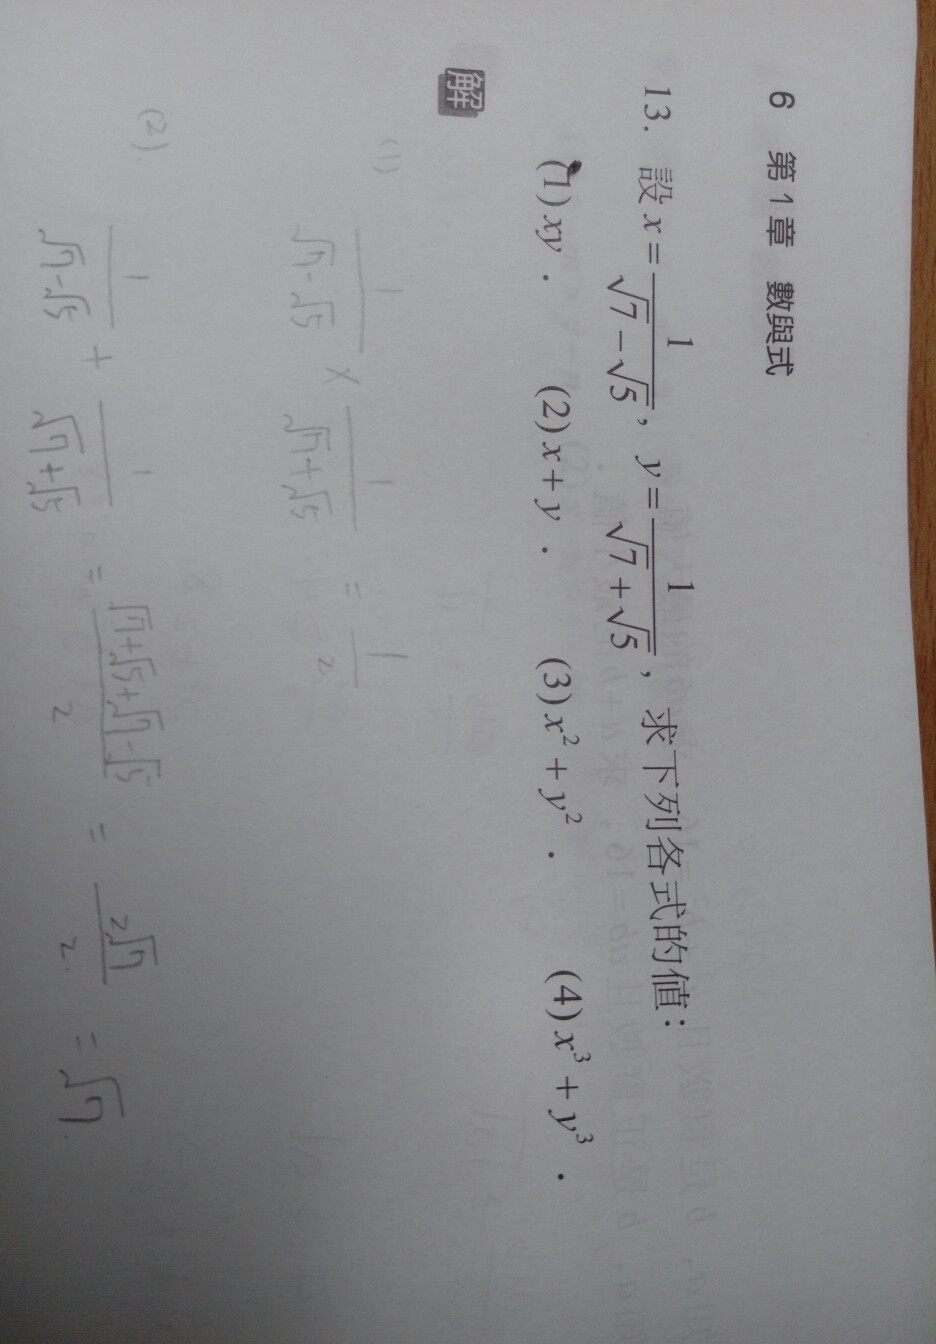 6 第1章 數與式
13. 設 x = 1/(√7 − √5), y = 1/(√7 + √5), 求下列各式的值：
(1) xy . (2) x + y . (3) x² + y² . (4) x³ + y³ .
解
(1) 1/(√7 - √5) × 1/(√7 + √5) = 1/2
(2). 1/(√7 - √5) + 1/(√7 + √5) = (√7 + √5 + √7 - √5)/2 = 2√7/2. = √7.